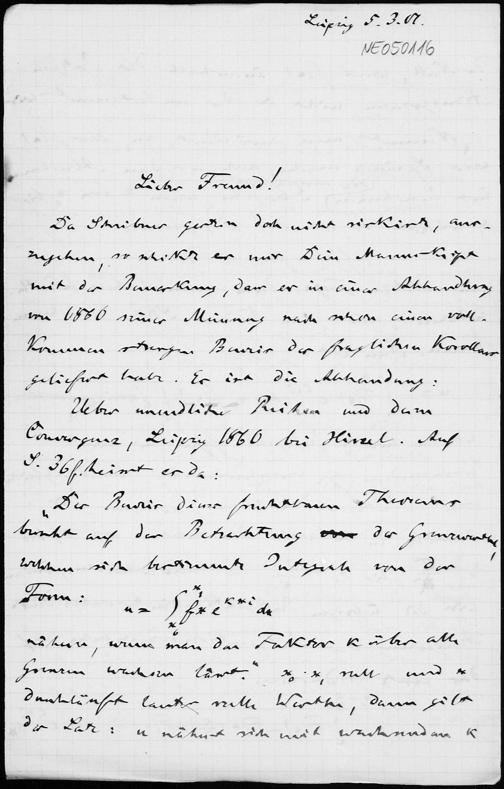 Leipzig 5.3.01.
NE050116
Lieber Freund!
Da Scheibner gestern doch nicht riskirte, aus-
zugehen, so schickte er mir Dein Manuskript
mit der Bemerkung, dass er in einer Abhandlung
von 1860 seiner Meinung nach schon einen voll-
kommen strengen Beweis der fraglichen Korollars
geliefert habe. Es ist die Abhandlung:
Ueber unendliche Reihen und deren
Convergenz, Leipzig 1860 bei Hirzel. Auf
S. 36f. heisst es da:
"Der Beweis dieses fruchtbaren Theorems
beruht auf der Betrachtung der Grenzwerthe,
welchen sich bestimmte Integrale von der
Form: u = ∫ fx e^{kxi} dx
nähern, wenn man den Faktor k über alle
Grenzen wachsen lässt." x₀, x₁ reell und x
durchläuft lauter reelle Werthe, dann gilt
der Satz: u nähert sich mit wachsendem k